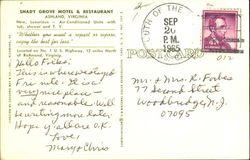 SHADY GROVE MOTEL & RESTAURANT
ASHLAND, VIRGINIA
New, Luxurious - Air-Conditioned Units with
tub, shower and T. V.
"Whether you want a repast or repose,
enjoy the best for less"
Located on No. 1 U. S. Highway, 12 miles North
of Richmond, Virginia
Hello Folks:
This is where we stayed
Fri nite. It is a
very nice place
and reasonable. Will
be writing more later.
Hope y'all are O.K.
Love,
Mary & Chris
SOUTH OF THE
SEP
20
P.M.
1965
POST CARD
Mr. & Mrs. R. Forbes
77 Second Street
Woodbridge, N.J.
07095